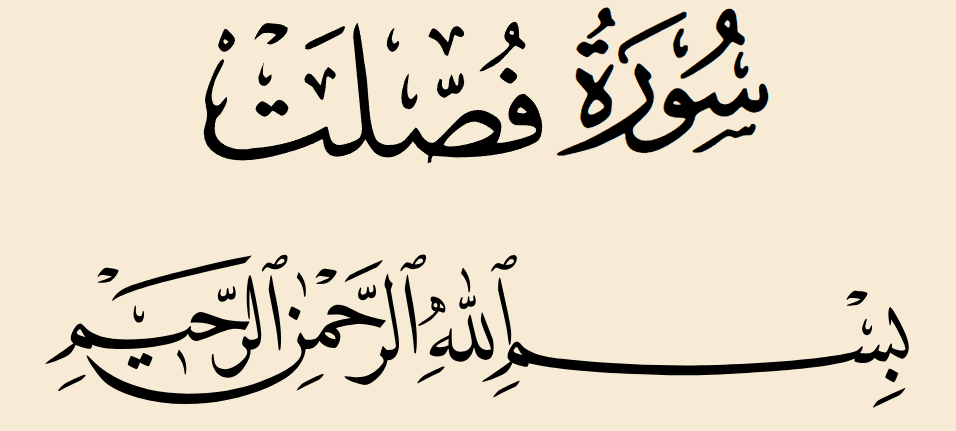 سُورَةُ فُصِّلَتْ
بِسْمِ ٱللَّهِ ٱلرَّحْمَٰنِ ٱلرَّحِيمِ